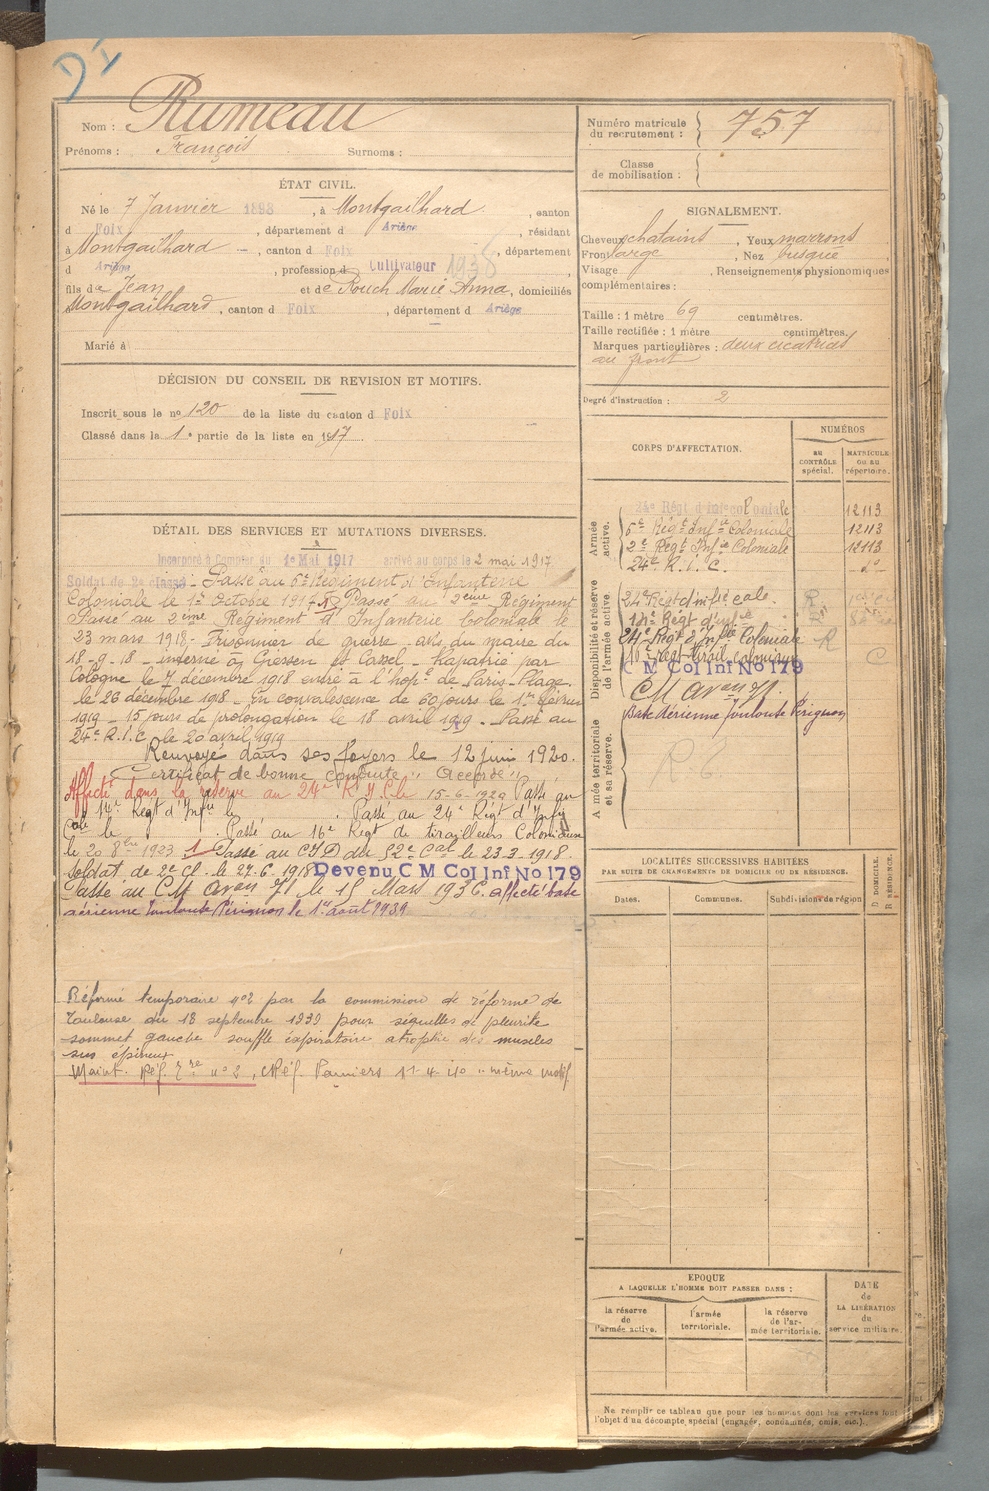 DI
Nom : Rumeau
Prénoms : François Surnoms :
Numéro matricule du recrutement : 757
Classe de mobilisation :
ÉTAT CIVIL.
Né le 7 Janvier 1898, à Montgailhard, canton
d Foix, département d Ariège, résidant
à Montgailhard, canton d Foix, département
d Ariège, profession d Cultivateur 1938
fils de Jean et de Rouch Marie Anna, domiciliés
Montgailhard, canton d Foix, département d Ariège
Marié à
SIGNALEMENT.
Cheveux chatains, Yeux marrons
Front large, Nez busqué
Visage , Renseignements physionomiques
complémentaires :
Taille : 1 mètre 69 centimètres.
Taille rectifiée : 1 mètre centimètres.
Marques particulières : deux cicatrices
au front
Degré d'instruction : 2
DÉCISION DU CONSEIL DE REVISION ET MOTIFS.
Inscrit sous le no 120 de la liste du canton d Foix
Classé dans la 1e partie de la liste en 1917
DÉTAIL DES SERVICES ET MUTATIONS DIVERSES.
Incorporé à compter du 1e Mai 1917 arrivé au corps le 2 mai 1917
Soldat de 2e classe - Passé au 5e Régiment d'Infanterie
Coloniale le 1er Octobre 1917. Passé au 2ème Régiment
Passé au 2ème Régiment d'Infanterie Coloniale le
23 mars 1918 - Prisonnier de guerre - avis du maire du
18-9-18 - interné à Giessen et Cassel - Rapatrié par
Cologne le 7 décembre 1918 entré à l'hopl de Paris-Plage
le 26 décembre 1918 - En convalescence de 60 jours le 1er février
1919 - 15 jours de prolongation le 18 avril 1919 - Passé au
24e R.I.C. le 20 avril 1919
Renvoyé dans ses foyers le 12 juin 1920.
Certificat de bonne conduite "Accordé"
Affecté dans la réserve au 24e R.I.C. le 15-6-1920 Passé au
14e Régt d'Infie le . Passé au 24e Régt d'Infie
Cale le . Passé au 16e Régt de tirailleurs Coloniaux
le 20 8bre 1923 1 Passé au CID du 52e Cal le 23-3-1918.
Soldat de 2e cl. le 27.6.1918 Devenu C M Col Inf No 179
Passé au CM Aven 71 le 15 Mars 1936. affecté base
aérienne Toulouse Pérignon le 1er août 1939
Réformé temporaire no2 par la commission de réforme de
Toulouse du 18 septembre 1939 pour séquelles de pleurite
sommet gauche souffle expiratoire atrophie des muscles
sus épineux
Maint. Réf. Tre no 2, CRéf. Pamiers 11-4-40 "même motif
CORPS D'AFFECTATION.
NUMÉROS
au CONTRÔLE spécial.
MATRICULE ou au répertoire.
Armée active.
24e Régt d'Inf coloniale 12113
5e Régt Infie Coloniale 12113
2e Régt Infie Coloniale 12113
24e R.I.C. -do-
Disponibilité et réserve de l'armée active.
24e Régt d'infie cale. R
14e Régt d'infie
24e Régt d'Infie Coloniale R
16e Régt tirail. coloniaux C
C M Col Inf No 179
CM Aven 71
Base Aérienne Toulouse Pérignon
Armée territoriale et sa réserve.
LOCALITÉS SUCCESSIVES HABITÉES
PAR SUITE DE CHANGEMENTS DE DOMICILE OU DE RÉSIDENCE.
Dates. Communes. Subdivisions de région
D. DOMICILE. R. RÉSIDENCE.
EPOQUE
A LAQUELLE L'HOMME DOIT PASSER DANS :
la réserve de l'armée active.
l'armée territoriale.
la réserve de l'armée territoriale.
DATE de LA LIBÉRATION du service militaire.
Ne remplir ce tableau que pour les hommes dont les services font
l'objet d'un décompte spécial (engagés, condamnés, omis, etc.).